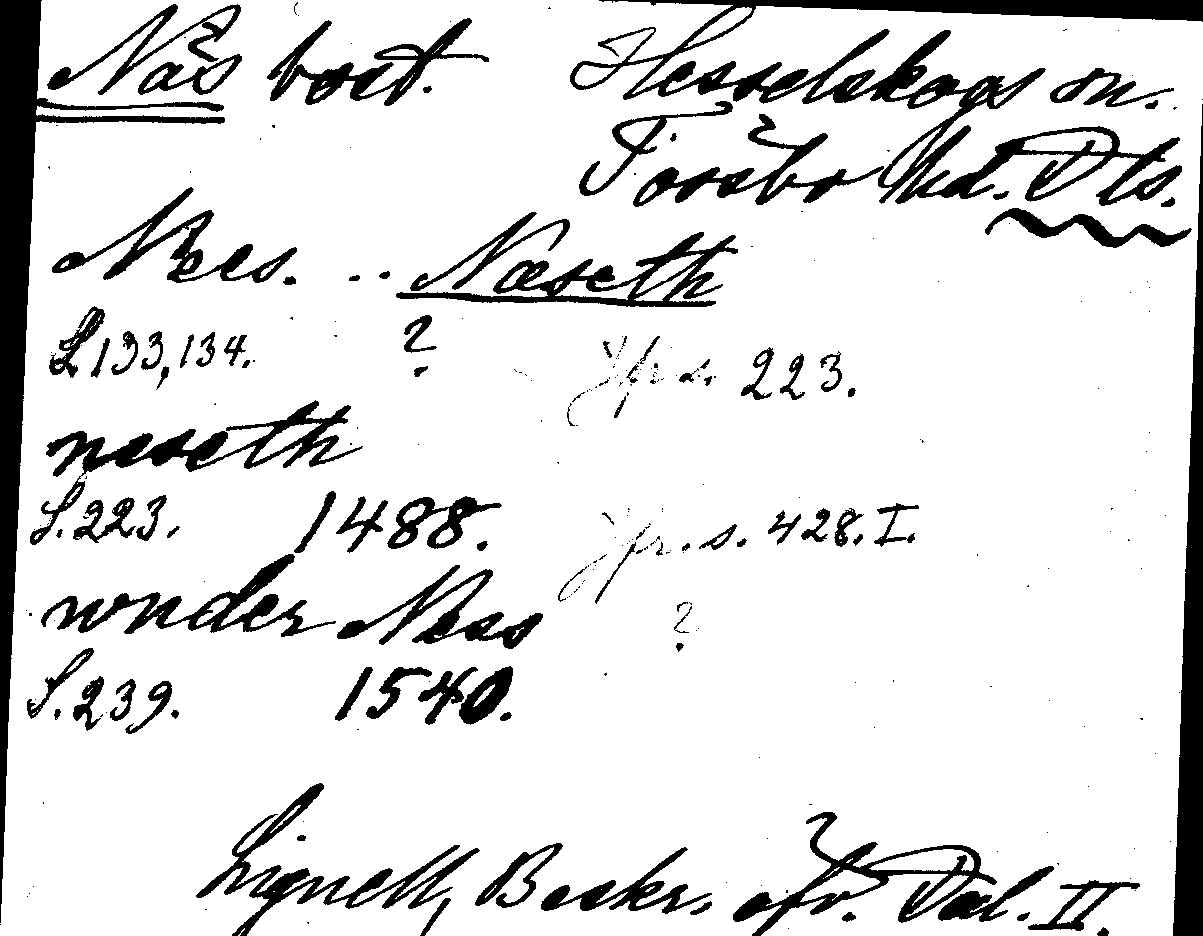 Näs bost. Hesselskogs sn.
Tössbo hd. Dls.
Nees. .. Næseth
S. 133, 134. ? Jfr s. 223.
neseth
S. 223. 1488. Jfr. s. 428. I.
wnder Ness ?
S. 239. 1540.
Lignell, Beskr. öfv. Dal. II.